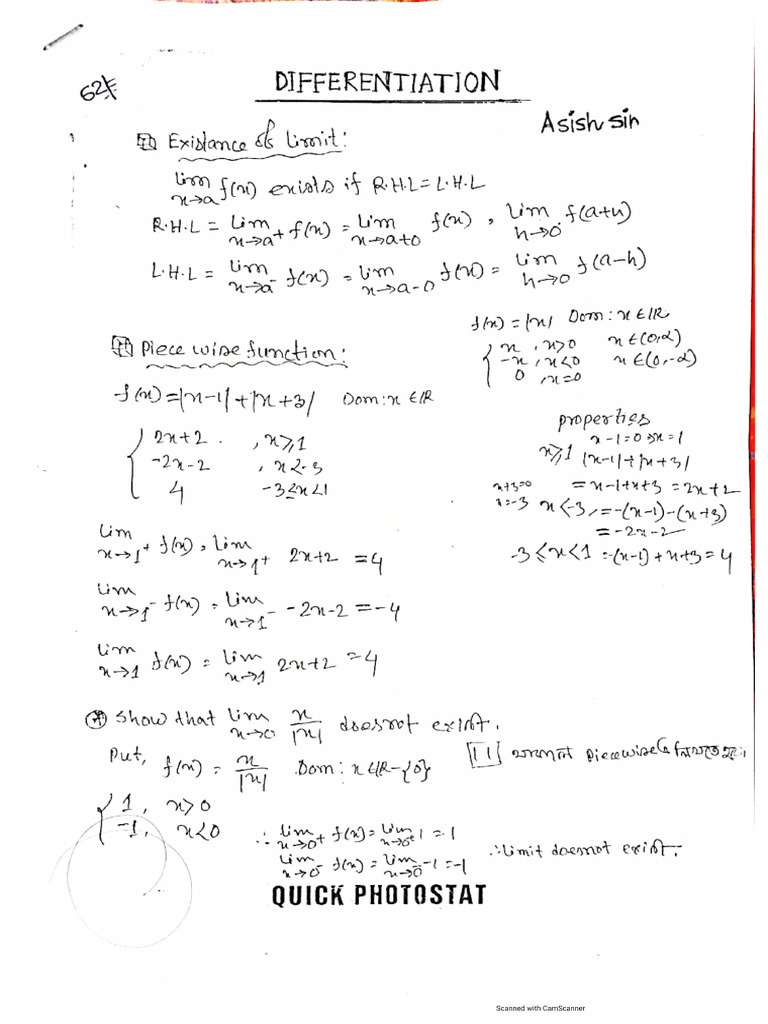 DIFFERENTIATION
Asish sir
Existance of Limit:
lim x→a f(x) exists if R.H.L = L.H.L
R.H.L = Lim x→a+ f(x) = Lim x→a+0 f(x), Lim h→0 f(a+h)
L.H.L = Lim x→a- f(x) = lim x→a-0 f(x) = Lim h→0 f(a-h)
f(x) = |x| Dom: x ∈ IR
x , x>0 x ∈ (0,α)
-x , x<0 x ∈ (0,-α)
0 , x=0
Piece wise function:
f(x) = |x-1| + |x+3| Dom: x ∈ IR
2x+2 , x≥1
-2x-2 , x<-3
4 -3≤x<1
properties
x-1=0 x=1
x≥1 |x-1|+|x+3|
x+3=0
x=-3
= x-1+x+3 = 2x+2
x<-3, = -(x-1)-(x+3)
= -2x-2
-3≤x<1 = -(x-1)+x+3 = 4
Lim x→1+ f(x), Lim x→1+ 2x+2 = 4
Lim x→1- f(x) = Lim x→1- -2x-2 = -4
Lim x→1 f(x) = Lim x→1 2x+2 = 4
Show that Lim x→0 x/|x| doesnot exist.
Put, f(x) = x/|x| Dom: x ∈ IR-{0}
[||] থাকলে Piecewise এ
1, x>0
-1, x<0
∴ Lim x→0+ f(x) = Lim x→0+ 1 = 1
Lim x→0- f(x) = Lim x→0- -1 = -1
∴ limit doesnot exist.
QUICK PHOTOSTAT
Scanned with CamScanner